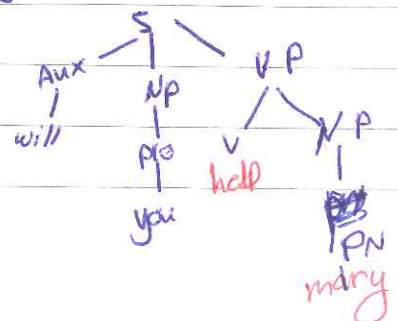 S
Aux NP VP
will pro V NP
you help PN
mary